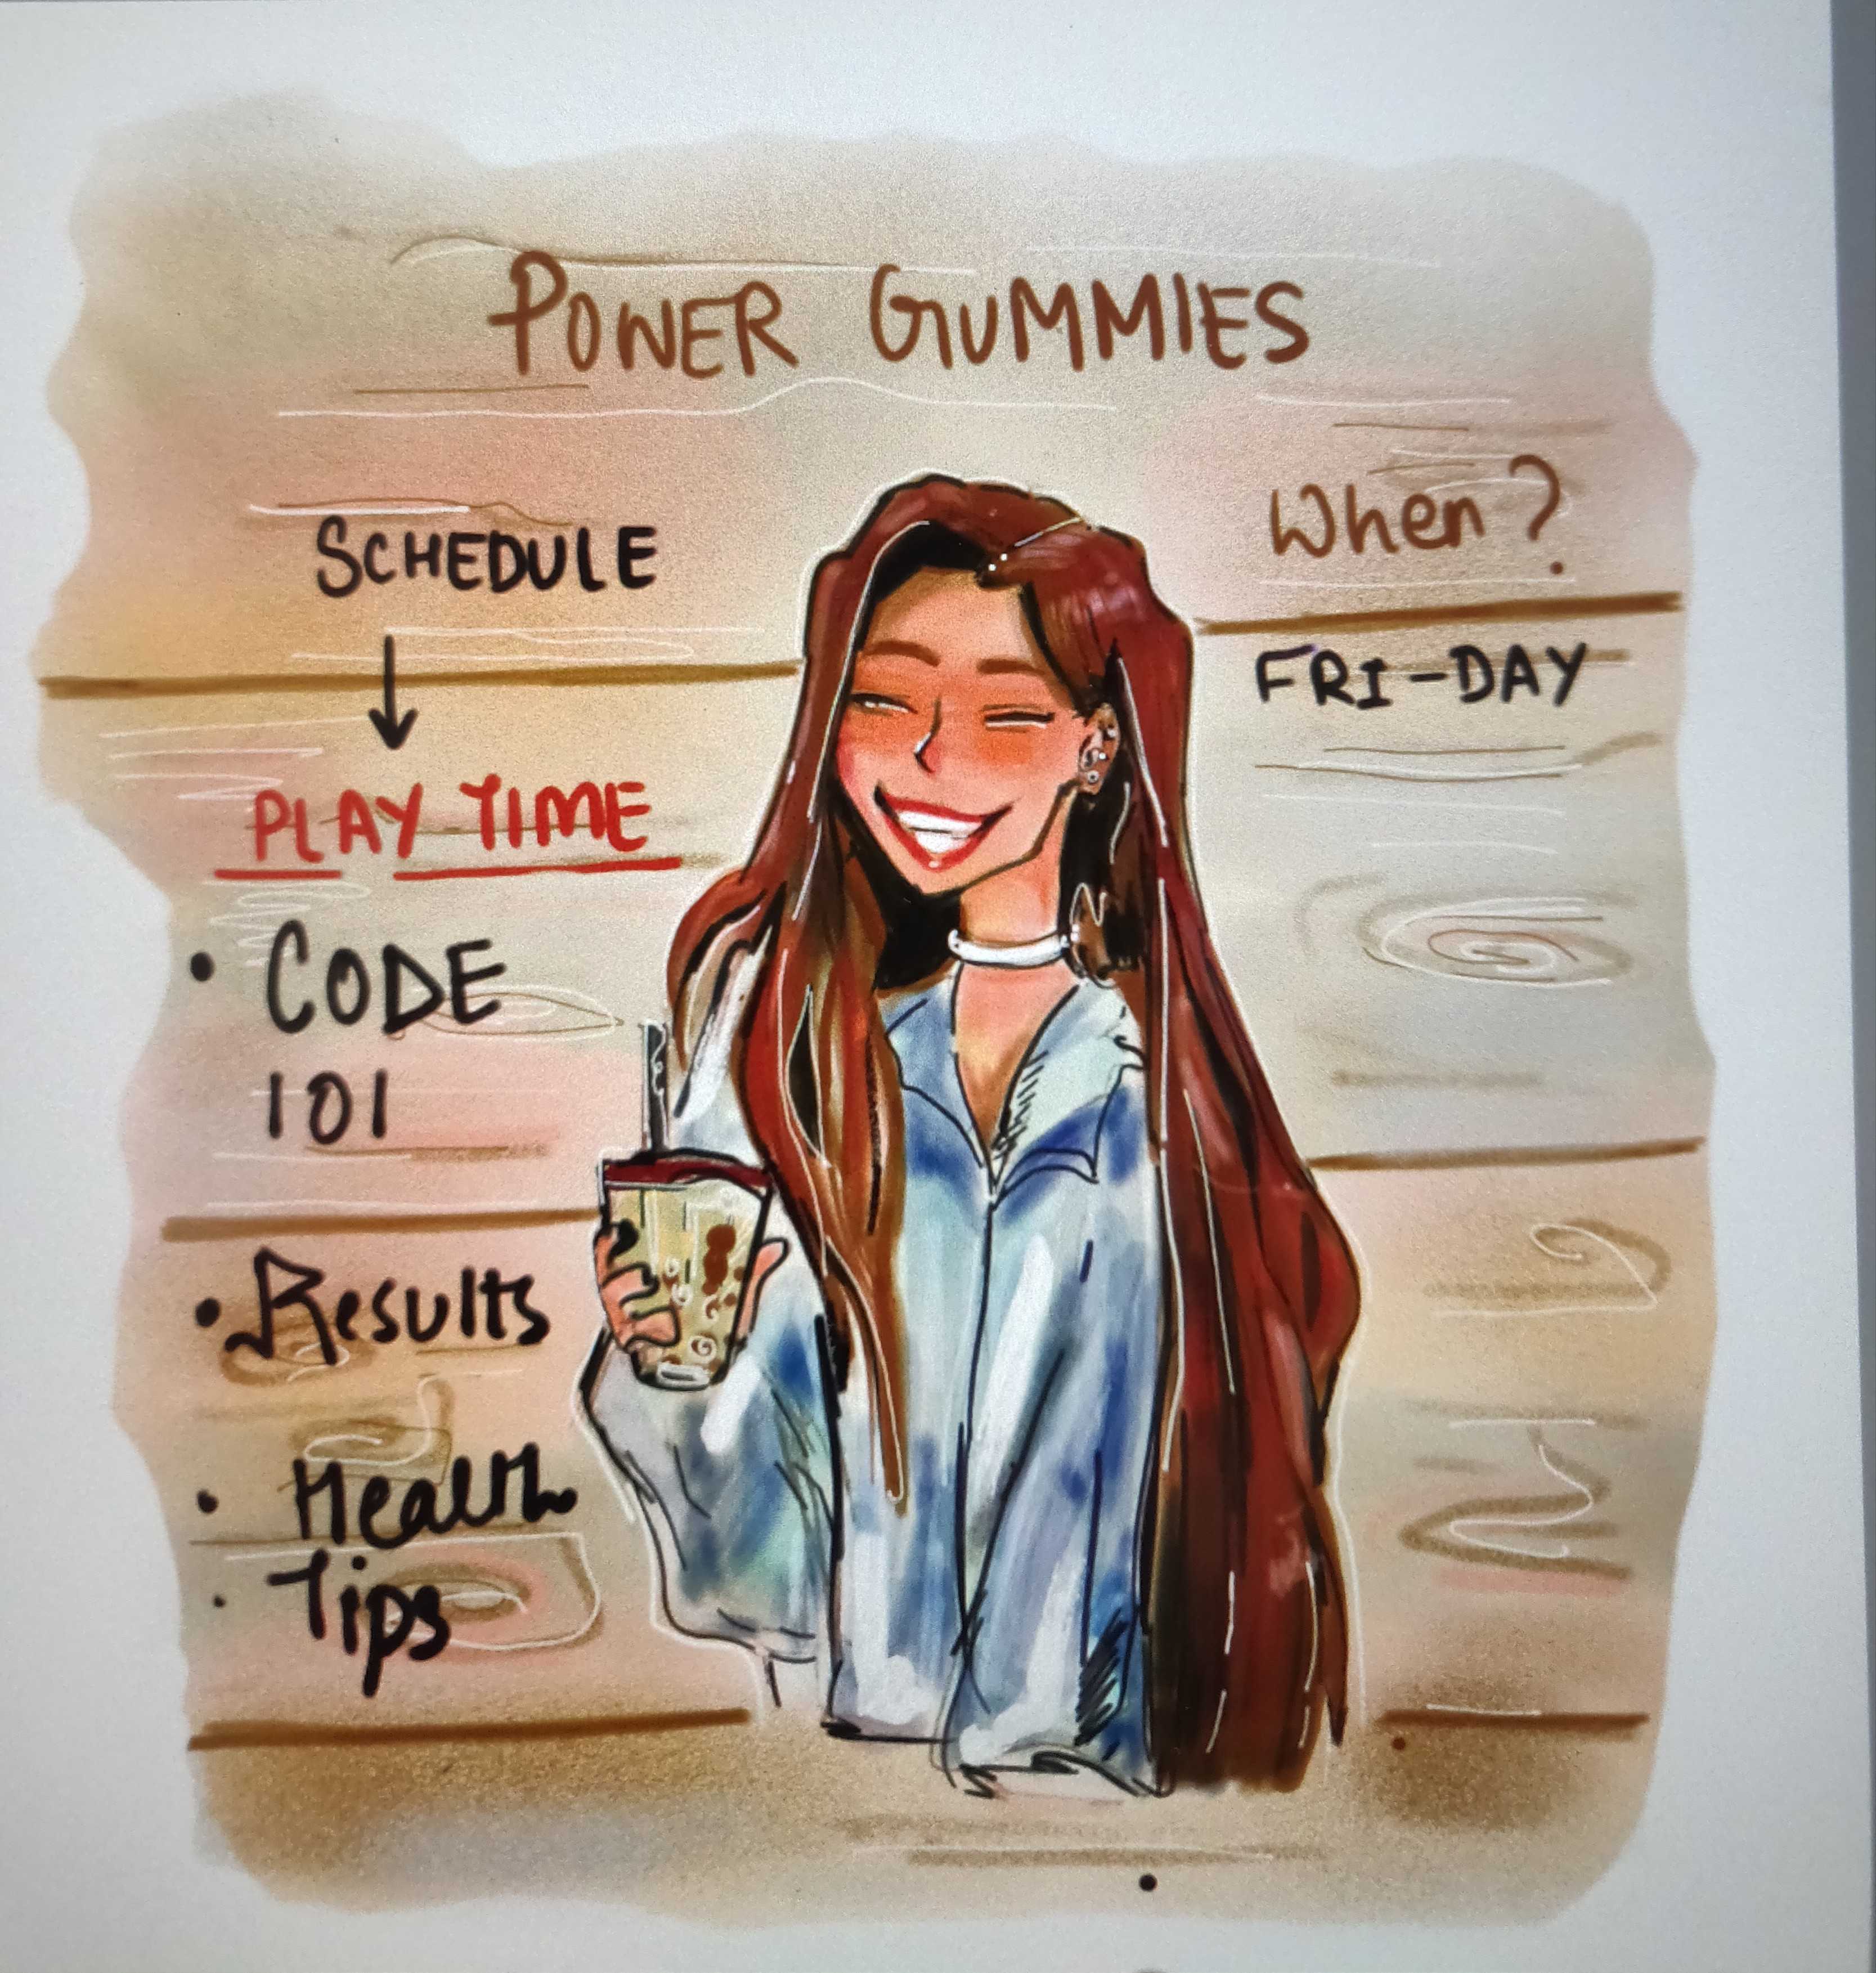 POWER GUMMIES
SCHEDULE
PLAY TIME
• CODE
101
• Results
• Health
• Tips
When?
FRI-DAY